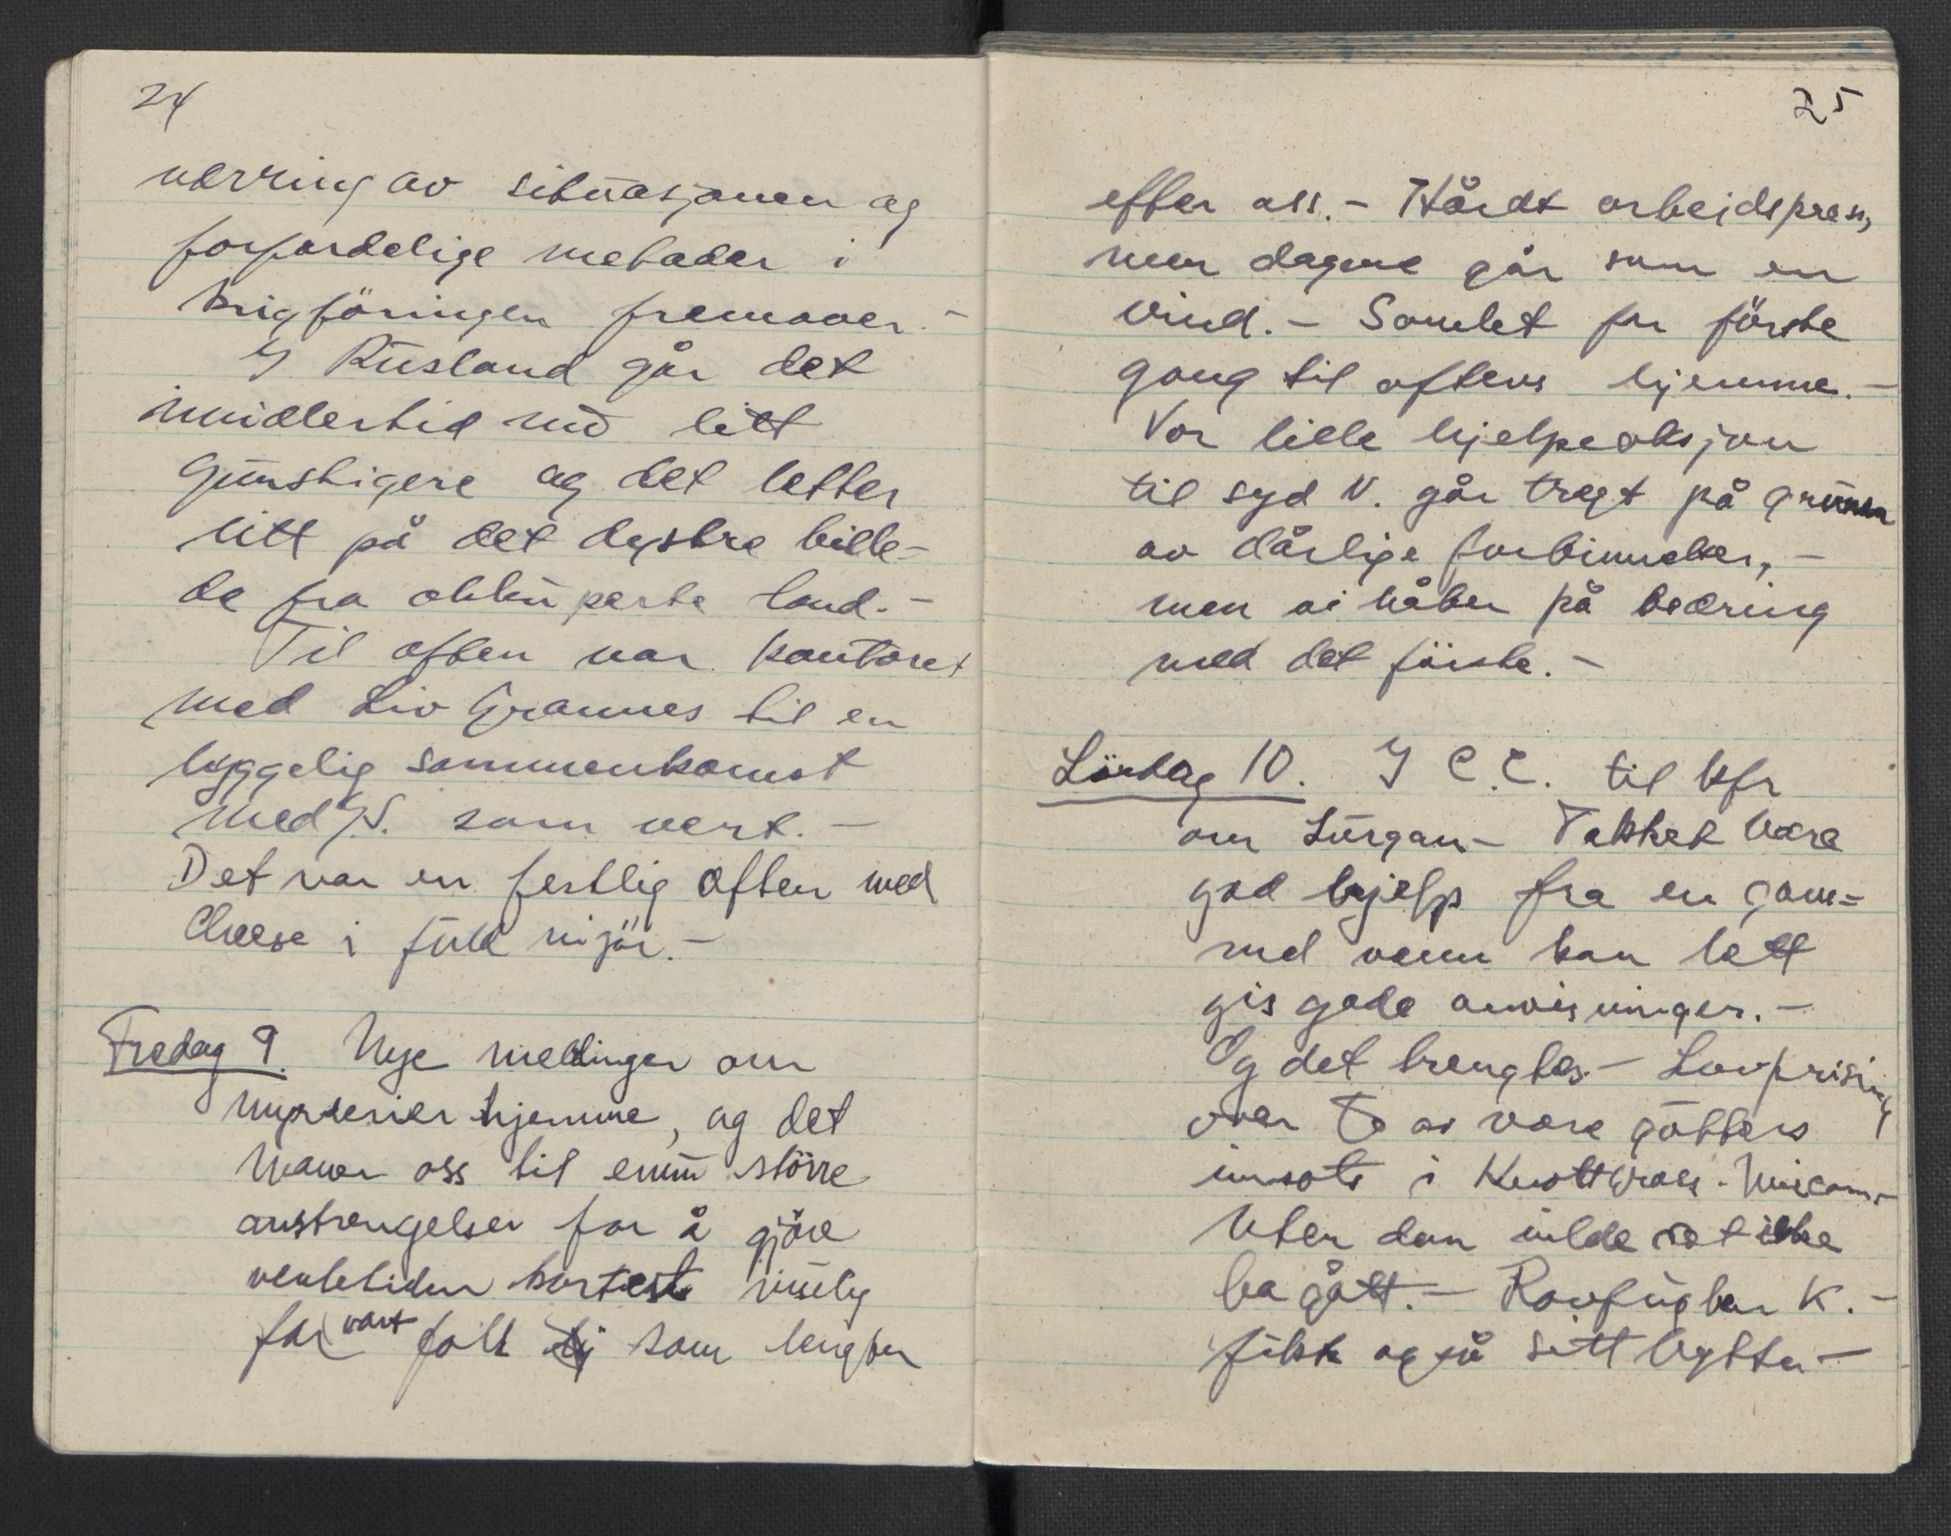 24
verring av situasjonen og
forferdelige metoder i
krigföringen fremover. -
I Rusland går det
imidlertid nu litt
gunstigere og det letter
litt på det dystre bille-
de fra okkuperte land. -
Til aften var kontoret
med Liv Grannes til en
hyggelig sammenkomst
med som vert. -
Det var en festlig aften med
Cheese i full vigör. -
Fredag 9. Nye meldinger om
myrderier hjemme, og det
maner oss til ennu större
anstrengelser for å gjöre
ventetiden kortest mulig
for vårt folk som lengter
25
efter oss. - Hårdt arbeidspress,
men dagene går som en
vind. - Samlet for förste
gang til aftens hjemme. -
Vor lille hjelpeaksjon
til syd N. går tregt på grunn
av dårlige forbinnelser, -
men vi håber på bedring
med det förste. -
Lördag 10. I C.C. til kfr
om Lurgan - Takket være
god hjelp fra en gam=
mel venn kan lett
gis gode anvisninger. -
Og det trengtes - Lovprising
over to av våre gutters
innsats i -
Uten dem vilde det ikke
ha gått. - Rovfuglen K. -
fikk også sitt